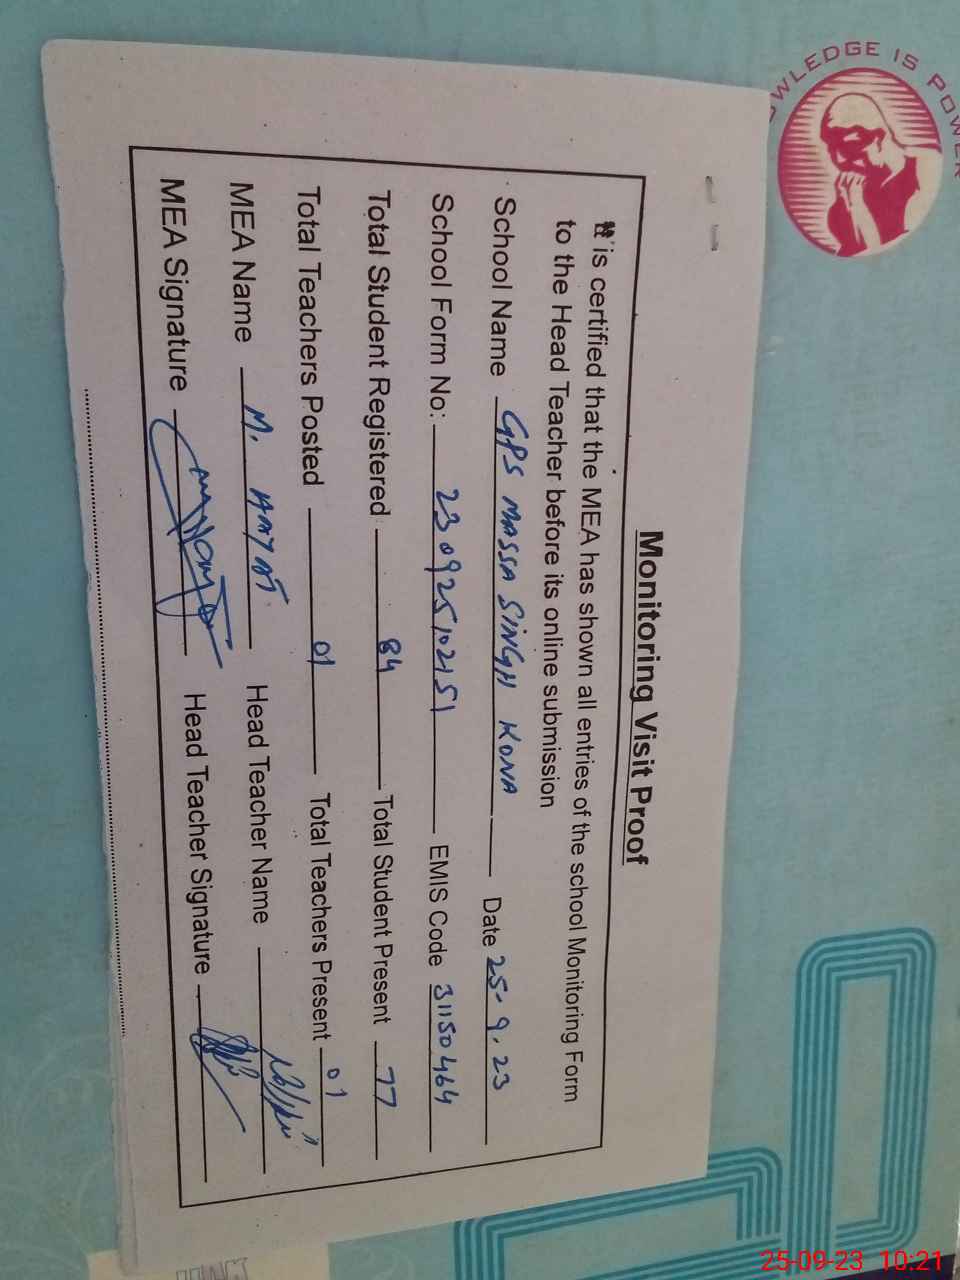 KNOWLEDGE IS POWER
Monitoring Visit Proof
It is certified that the MEA has shown all entries of the school Monitoring Form
to the Head Teacher before its online submission
School Name GPS MASSA SINGH KONA Date 25-9.23
School Form No: 230925102151 EMIS Code 31150464
Total Student Registered 84 Total Student Present 77
Total Teachers Posted 01 Total Teachers Present 01
MEA Name M. HAYAT Head Teacher Name
MEA Signature Head Teacher Signature
25-09-23 10:21